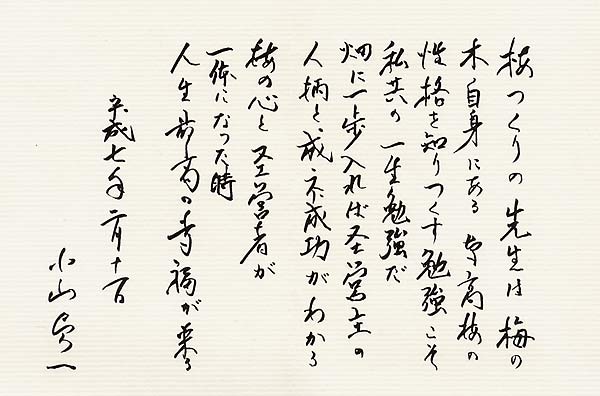 梅つくりの先生は梅の
木自身にある 最高梅の
性格を知りつくす勉強こそ
私共の一生勉強だ
畑に一歩入れば圣営主の
人柄と、成不成功がわかる
梅の心と圣営者が
一体になった時
人生最高の幸福が来る
平成七年二月十一日
小山